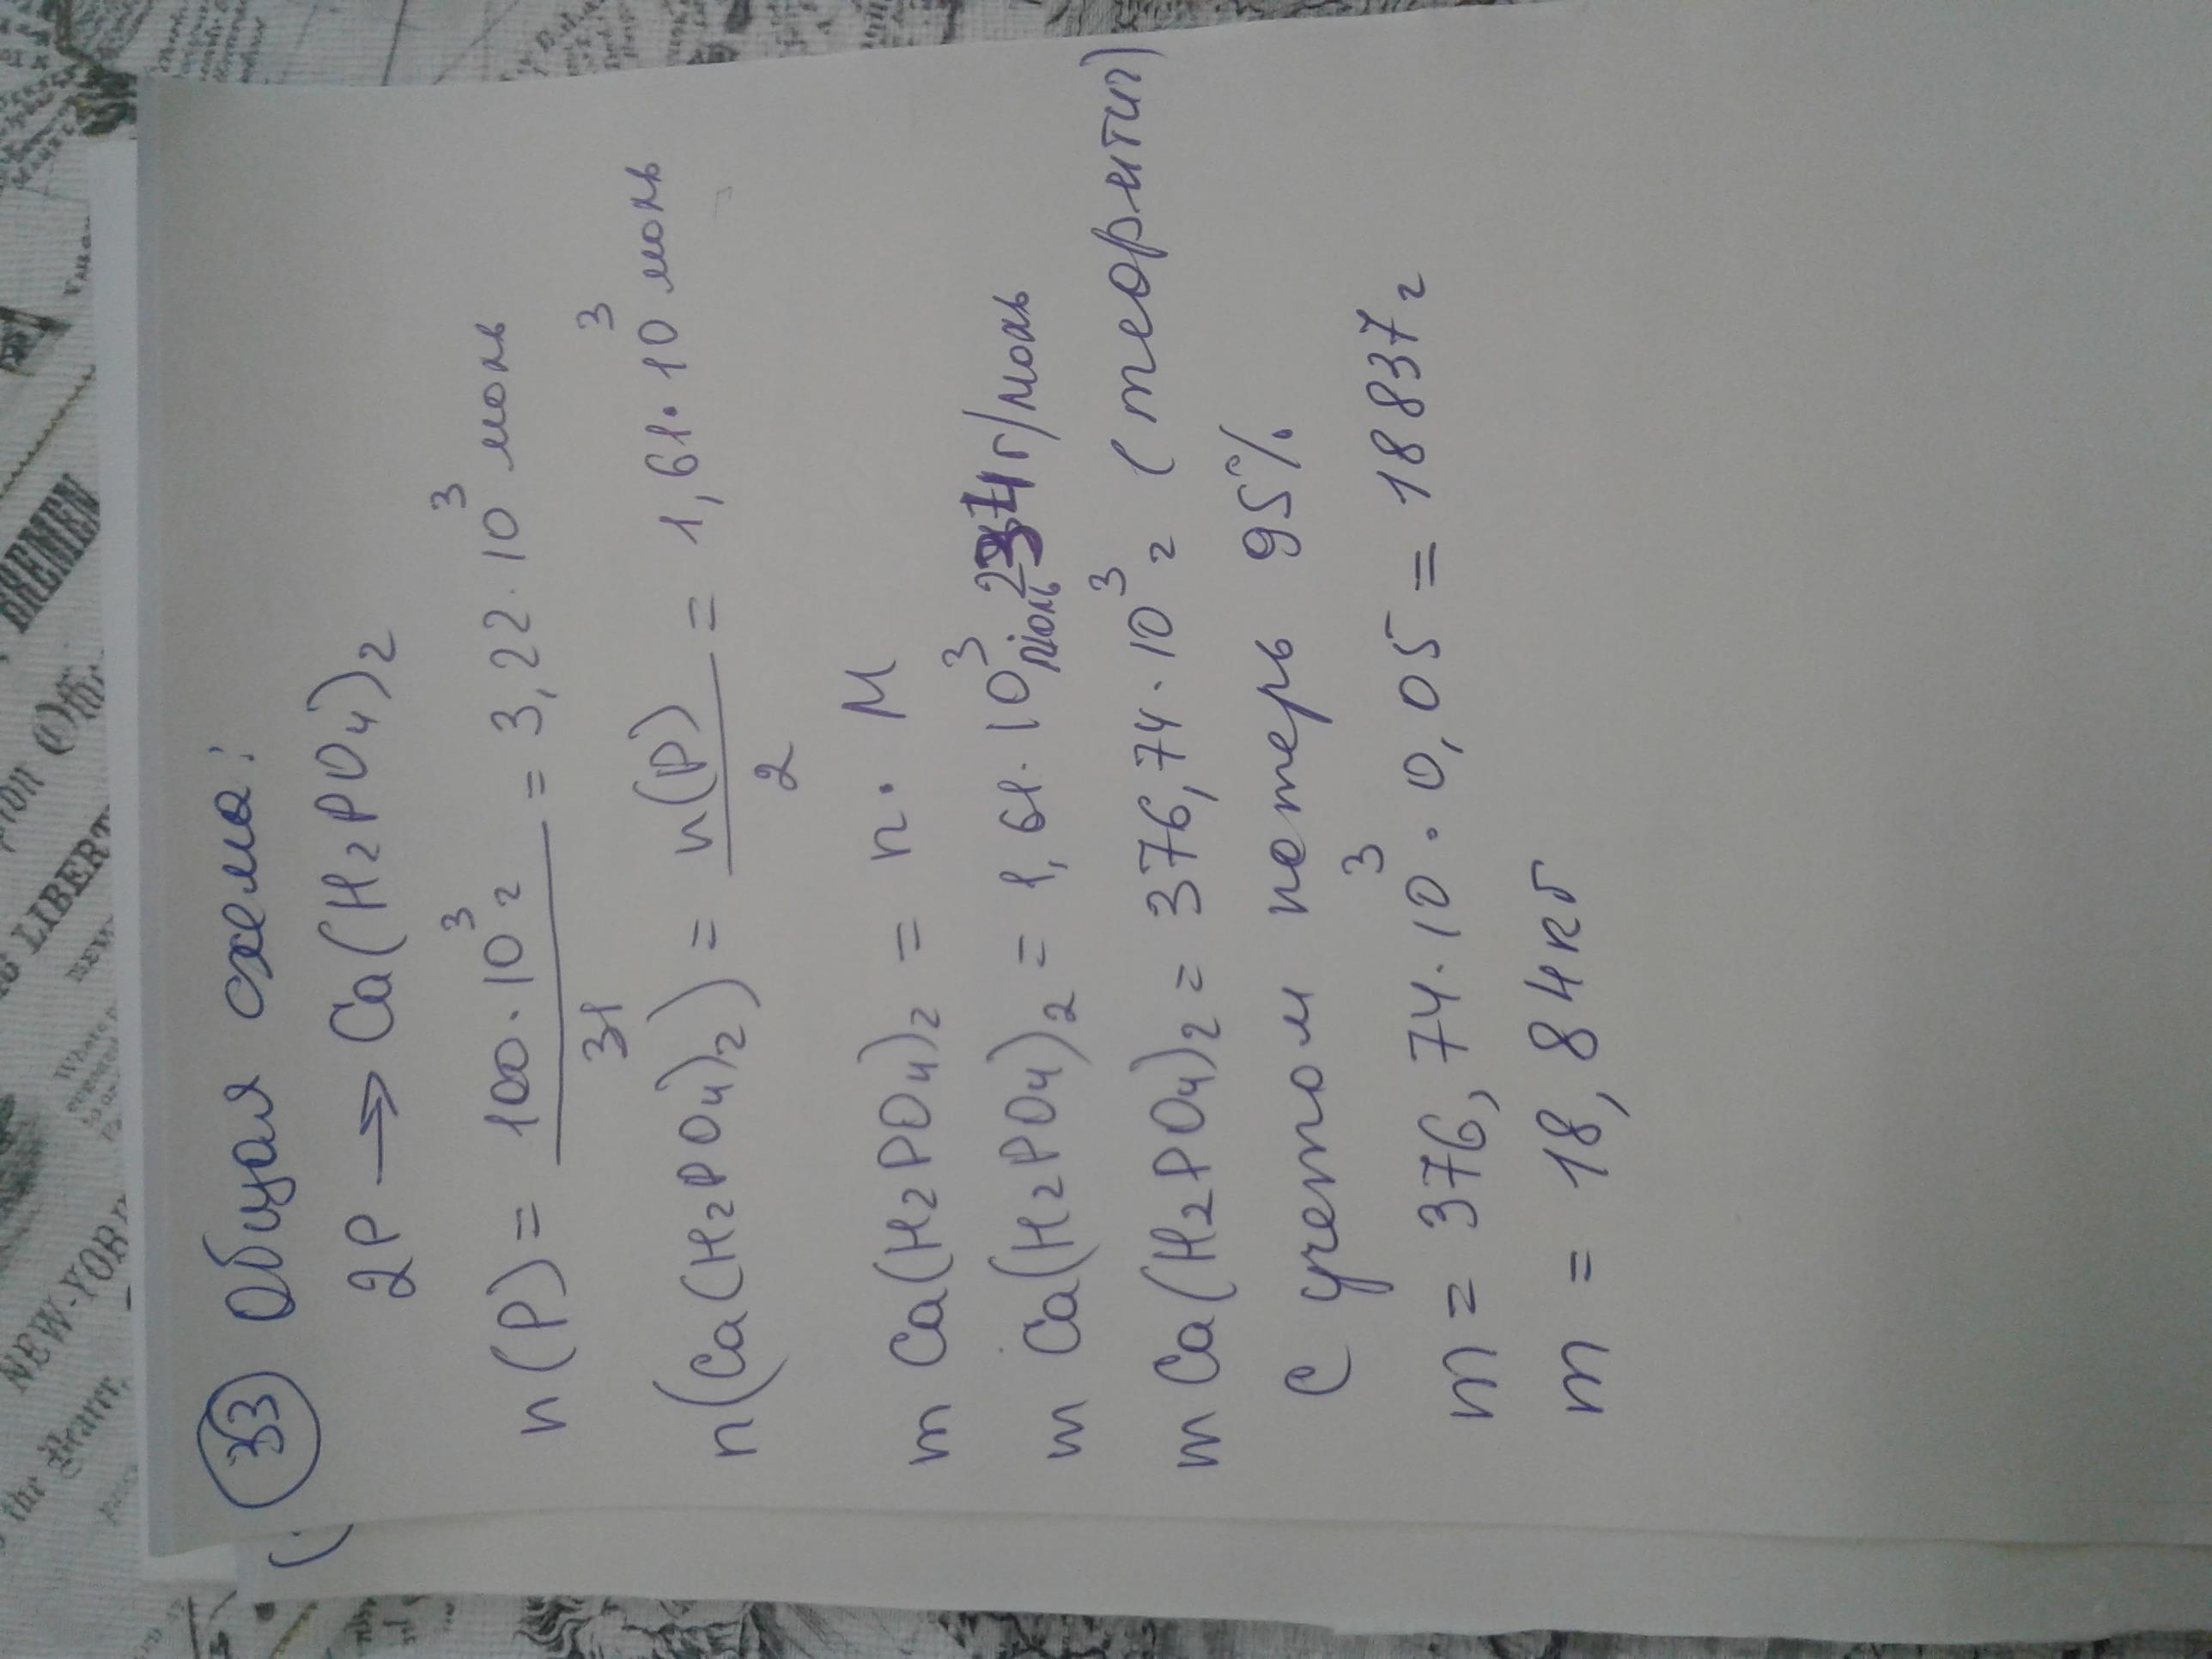 33 Общая схема:
2P → Ca(H₂PO₄)₂
n(P) = 100·10³ г / 31 = 3,22·10³ моль
n(Ca(H₂PO₄)₂) = n(P) / 2 = 1,61·10³ моль
m Ca(H₂PO₄)₂ = n · M
m Ca(H₂PO₄)₂ = 1,61·10³ моль 234 г/моль
m Ca(H₂PO₄)₂ = 376,74·10³ г (теоритич)
С учетом потерь 95%
m = 376,74·10³ · 0,05 = 18837 г
m = 18,84 кг
BREMEN
LIBERT
NEW
NEW-YORK
the Bearer,